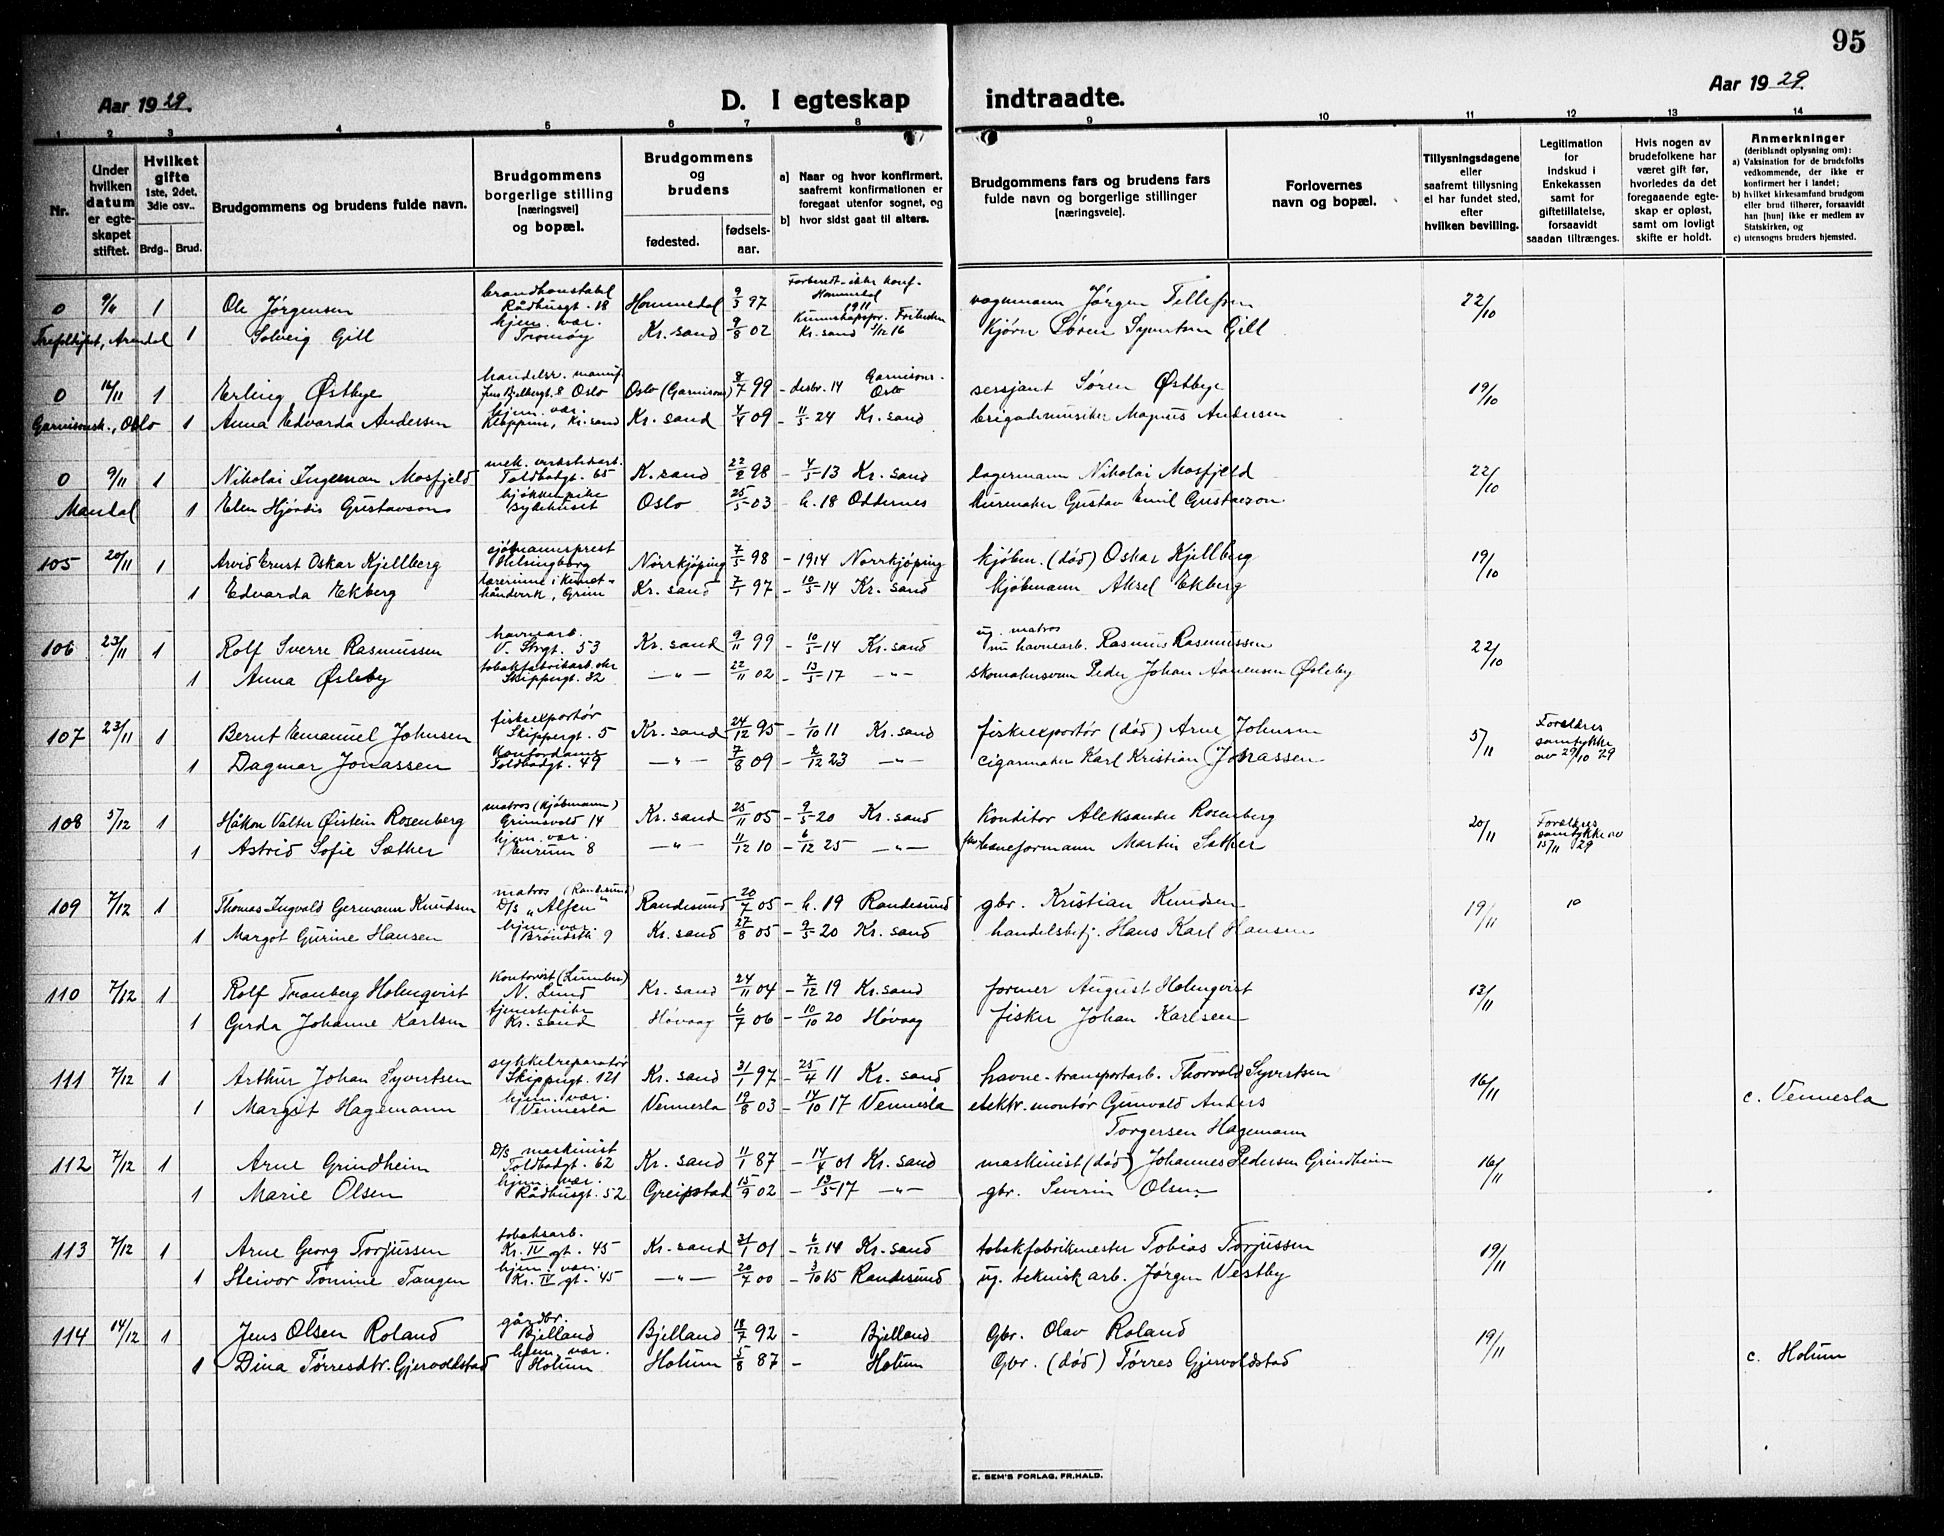 95
Aar 1929.
D. I egteskap indtraadte.
Aar 1929.
1 2 3 4 5 6 7 8 9 10 11 12 13 14
Nr.
Under hvilken datum er egteskapet stiftet.
Hvilket gifte 1ste, 2det, 3die osv..
Brdg.. Brud.
Brudgommens og brudens fulde navn.
Brudgommens borgerlige stilling [næringsvei] og bopæl.
Brudgommens og brudens
fødested. fødselsaar.
a) Naar og hvor konfirmert, saafremt konfirmationen er foregaat utenfor sognet, og
b) hvor sidst gaat til alters.
Brudgommens fars og brudens fars fulde navn og borgerlige stillinger [næringsveie].
Forlovernes navn og bopæl.
Tillysningsdagene eller saafremt tillysning ei har fundet sted, efter hvilken bevilling.
Legitimation for Indskud i Enkekassen samt for giftetillatelse, forsaavidt saadan tiltrænges.
Hvis nogen av brudefolkene har været gift før, hvorledes da det foregaaende egteskap er opløst, samt om lovligt skifte er holdt.
Anmerkninger (deriblandt oplysning om):
a) Vaksination for de brudefolks vedkommende, der ikke er konfirmert her i landet;
b) hvilket kirkesamfund brudgom eller brud tilhører, forsaavidt han [hun] ikke er medlem av Statskirken, og
c) utensogns bruders hjemsted.
0 1 Ole Jørgensen brandkonstabel Rådhusgt. 18 Hommedal 9/3 97 Forberedt - ikke konf. Hommedal 1911 vognmann Jørgen Tellefsen 22/10
Arendal 1 Solveig Gill hjem. vær. Tromøy Kr. sand 9/8 02 Kr. sand 3/12 16 Kjørn Søren Syvertsen Gill
0 16/11 1 Erling Østbye Oslo Oslo (Garnisons) 8/7 99 - desbr. 14 Garnisons- Oslo sersjant Søren Østbye 19/10
Garnisonsk., Oslo 1 Anna Edvarda Andersen hjem. vær. Kløppen, Kr. sand Kr. sand 4/4 09 - 11/5 24 Kr. sand brigademusiker Magnus Andersen
0 9/11 1 Nikolai Ingeman Mosfjeld mek. verkstedarb. Toldbodgt. 65 K. sand 22/2 98 - 4/5 - 13 Kr. sand lagermann Nikolai Mosfjeld 22/10
Mandal 1 Elen Hjørdis Gustavson kjøkkenpike Bysykehuset Oslo 25/5 03 - h. 18 Oddernes Gustav Emil Gustavson
105 20/11 1 Arvid Ernst Oskar Kjellberg sjømannsprest Helsingborg Norrkjøping 7/5 98 - 1914 Norrkjøping kjøbm. (død) Oskar Kjellberg 19/10
1 Edvarda Ekberg lærerinne i kunst-håndverk, Grim Kr. sand 7/1 97 - 10/5 - 14 Kr. sand kjøbmann Aksel Ekberg
106 23/11 1 Rolf Sverre Rasmussen havnearb. V. Strgt. 53 Kr. sand 9/11 99 - 10/5 - 14 Kr. sand ug. matros nu havnearb. Rasmus Rasmussen 22/10
1 Anna Øsleby tobakfabrikarb.ske Skippergt. 32 -"- 22/11 02 - 13/5 - 17 -"- skomakersvenn Peder Johan Aanensen Øsleby
107 23/11 1 Bernt Emanuel Johnsen fiskeexportør Skippergt. 5 Kr. sand 24/12 95 - 1/10 11 Kr. sand fiskeexportør (død) Arne Johnsen 5/11 Foreldres samtykke av 29/10 29
1 Dagmar Jonassen Kontordame Toldbodgt. 49 -"- 7/8 09 - 2/12 23 -"- cigarmaker Karl Kristian Jonassen
108 5/12 1 Håkon Valter Øistein Rosenberg matros (kjøbmann) Grimsvold 14 Kr. sand 25/11 05 - 9/5 - 20 Kr. sand Konditor Aleksander Rosenberg 20/11 Foreldres samtykke av 15/11 29
1 Astrid Sofie Sæther hjem. vær. 8 -"- 11/12 10 - 6/12 25 -"- baneformann Martin Sæther
109 7/12 1 Thomas Ingvald Germann Knudsen matros (Randesund) D/S "Alfen" Randesund 20/7 05 - h. 19 Randesund gbr. Kristian Knudsen 19/11
1 Margot Gurine Hansen hjem. vær. 9 Kr. sand 27/8 05 - 9/5 20 Kr. sand handelsbetj. Hans Karl Hansen
110 7/12 1 Rolf Tranberg Holmqvist kontorist (Lumber) N. Lund Kr. sand 24/11 04 - 7/12 19 Kr. sand former August Holmqvist 13/11
1 Gerda Johanne Karlsen tjenestepike Kr. sand Høvaag 6/7 06 - 10/10 20 Høvaag fisker Johan Karlsen
111 7/12 1 Arthur Johan Syvertsen sykkelreparatør Skippergt. 121 Kr. sand 21/1 97 - 25/4 11 Kr. sand havne-transportarb. Thorvald Syvertsen 16/11
1 Margit Hagemann hjem. vær. Vennesla Vennesla 19/8 03 - 14/10 17 Vennesla elektr. montør Gunvald Anders Torgersen Hagemann c. Vennesla
112 7/12 1 Arne Grindheim D/S maskinist Toldbodgt. 62 Kr. sand 11/1 87 - 14/4 01 Kr. sand maskinist (død) Johannes Pedersen Grindheim 16/11
1 Marie Olsen hjem. vær. Rådhusgt. 52 Greipstad 15/9 02 - 13/5 - 17 -"- gbr. Severin Olsen
113 7/12 1 Arne Georg Torjussen tobaksarb. Kr. IV gt. 45 Kr. sand 21/1 01 - 6/12 14 Kr. sand tobakfabrikmester Tobias Torjussen 19/11
1 Steivor Tomine Tangen hjem. vær. Kr. IV gt. 45 -"- 20/7 00 - 3/10 15 Randesund ug. teknisk arb. Jørgen Vestby
114 14/12 1 Jens Olsen Roland gårdbr. Bjelland Bjelland 18/7 92 - Bjelland Gbr. Olav Roland 19/11
1 Dina Tørresdtr. Gjervoldstad hjem. vær. Holum Holum 5/8 87 - Holum Gbr. (død) Tørres Gjervoldstad c. Holum
E. SEM'S FORLAG, FR.HALD.